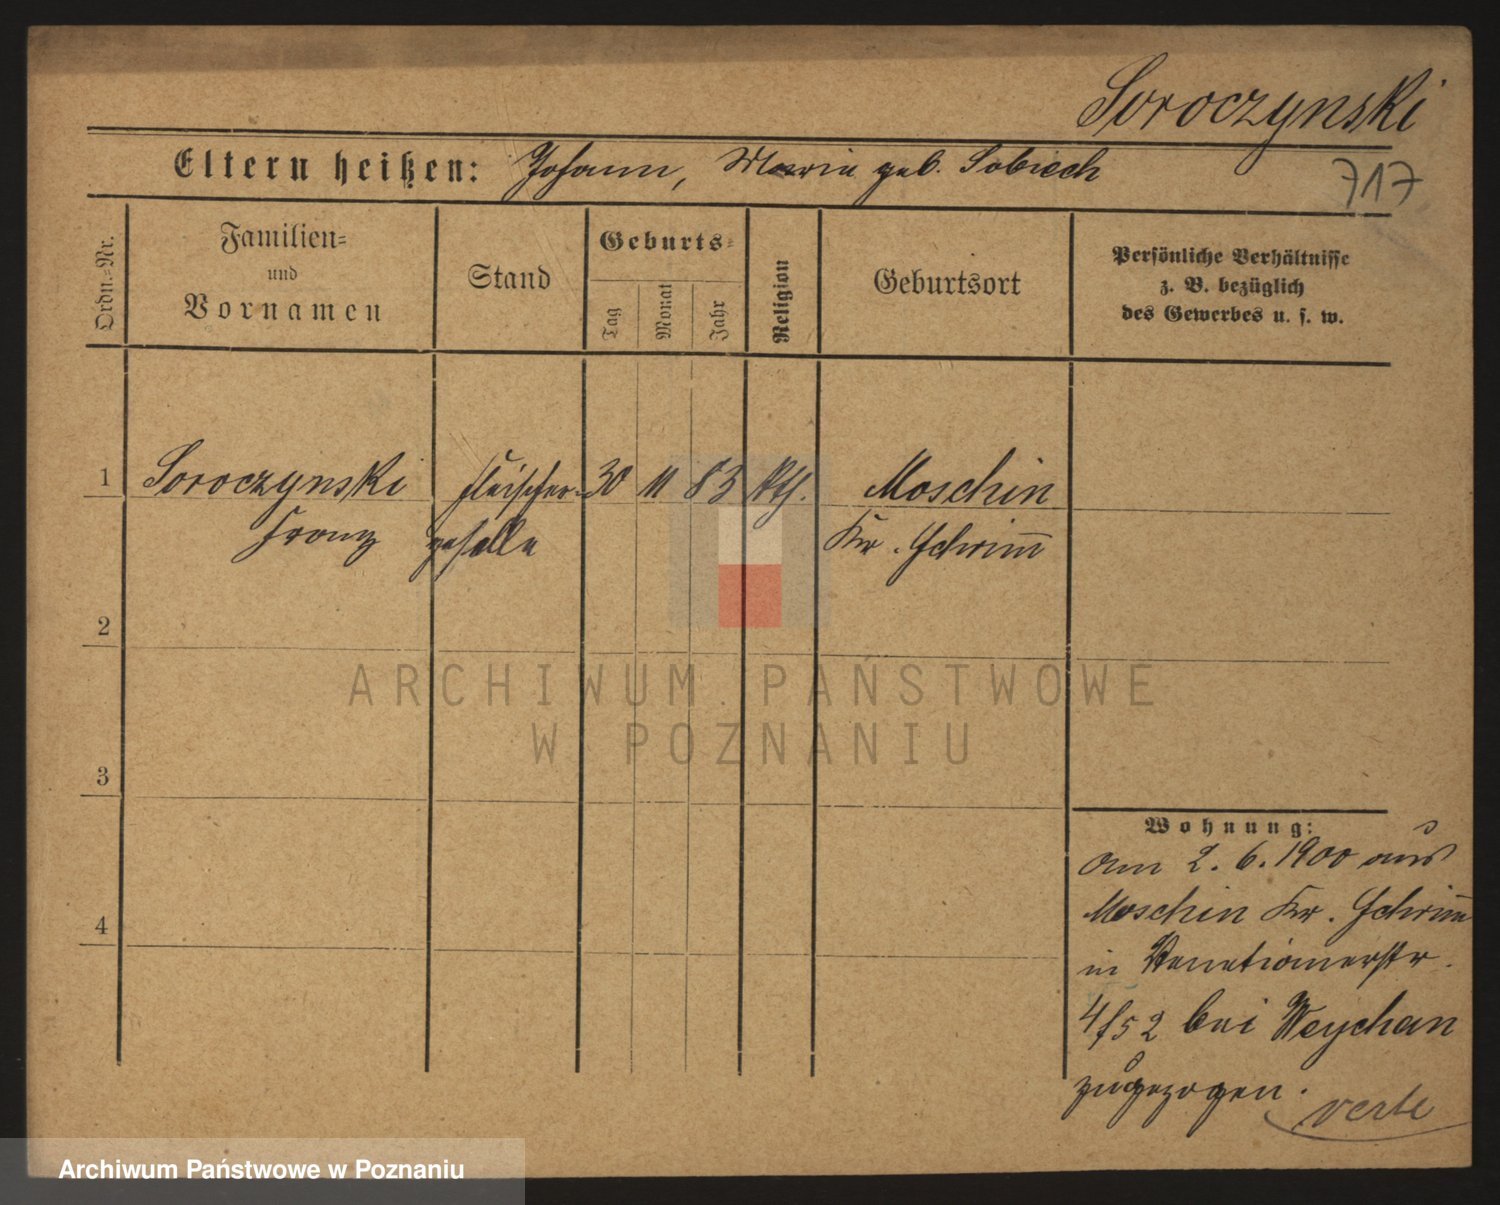 Soroczynski
Eltern heißen: Johann, Maria geb. Sobiech
717
Ordn.-Nr.
Familien-
und
Vornamen
Stand
Geburts-
Tag
Monat
Jahr
Religion
Geburtsort
Persönliche Verhältnisse
z. B. bezüglich
des Gewerbes u. s. w.
1 Soroczynski Fleischer- 30 11 83 kth. Moschin
Franz geselle Kr. Schrim̄
2
3
4
Wohnung:
am 2. 6. 1900 aus
Moschin Kr. Schrim̄
in Venetianerstr.
bei Weychan
zugezogen.
verte
ARCHIWUM PAŃSTWOWE
W POZNANIU
Archiwum Państwowe w Poznaniu